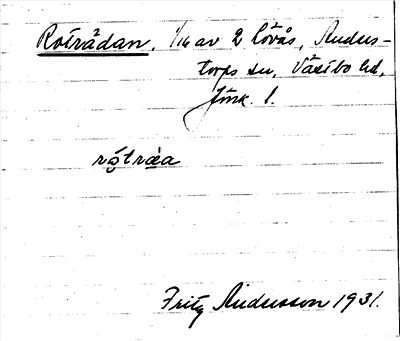 Roträdan, 1/16 av 2 Lövås, Anders-
torps sn, Västbo hd,
Jönk. l.
rǫ́træa
Fritz Andersson 1931.